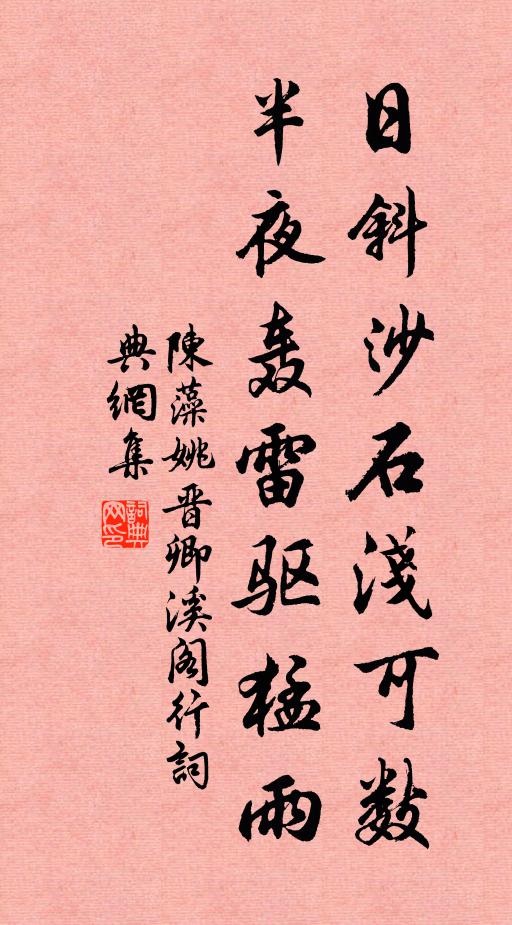 日斜沙石淺可数
半夜轰雷驱猛雨
陳藻姚晋卿溪阁行詞
典網集
詞典网印